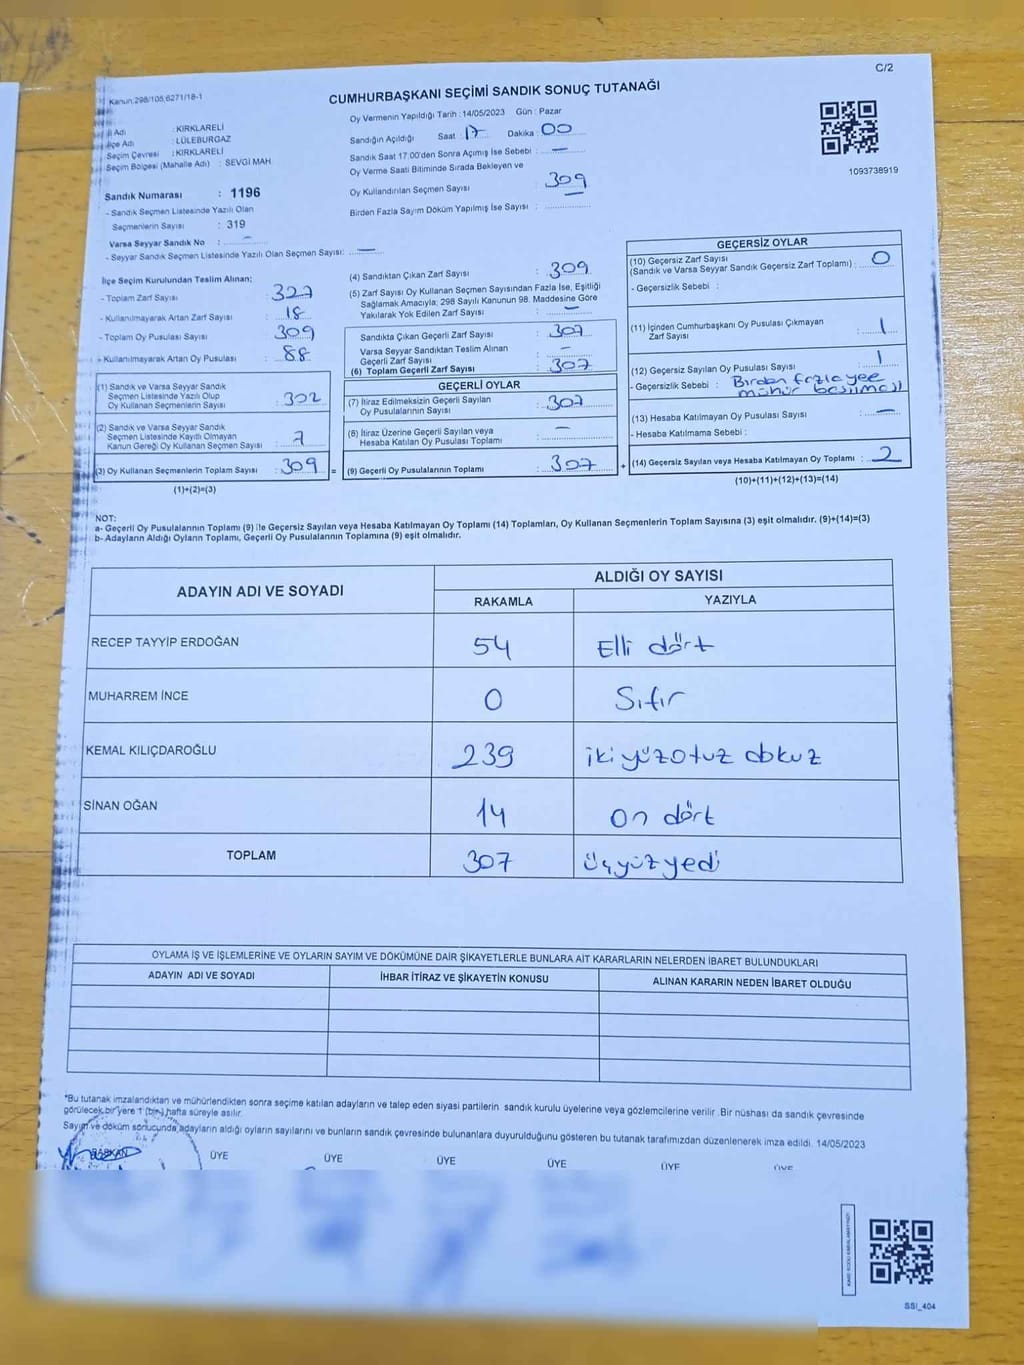 C/2
Kanun:298/105,6271/18-1
CUMHURBAŞKANI SEÇİMİ SANDIK SONUÇ TUTANAĞI
İl Adı : KIRKLARELİ
İlçe Adı : LÜLEBURGAZ
Seçim Çevresi : KIRKLARELİ
Seçim Bölgesi (Mahalle Adı) : SEVGI MAH
Sandık Numarası : 1196
- Sandık Seçmen Listesinde Yazılı Olan
Seçmenlerin Sayısı : 319
Varsa Seyyar Sandık No : -
- Seyyar Sandık Seçmen Listesinde Yazılı Olan Seçmen Sayısı: —
Oy Vermenin Yapıldığı Tarih : 14/05/2023 Gün : Pazar
Sandığın Açıldığı Saat : 17 Dakika : 00
Sandık Saat 17.00'den Sonra Açımış İse Sebebi : —
Oy Verme Saati Bitiminde Sırada Bekleyen ve
Oy Kullandırılan Seçmen Sayısı : 309
Birden Fazla Sayım Döküm Yapılmış İse Sayısı : —
1093738919
İlçe Seçim Kurulundan Teslim Alınan;
- Toplam Zarf Sayısı : 327
- Kullanılmayarak Artan Zarf Sayısı : 18
- Toplam Oy Pusulası Sayısı : 309
- Kullanılmayarak Artan Oy Pusulası : 88
(1) Sandık ve Varsa Seyyar Sandık
Seçmen Listesinde Yazılı Olup
Oy Kullanan Seçmenlerin Sayısı : 302
(2) Sandık ve Varsa Seyyar Sandık
Seçmen Listesinde Kayıtlı Olmayan
Kanun Gereği Oy Kullanan Seçmen Sayısı : 7
(3) Oy Kullanan Seçmenlerin Toplam Sayısı : 309 =
(1)+(2)=(3)
(4) Sandıktan Çıkan Zarf Sayısı : 309
(5) Zarf Sayısı Oy Kullanan Seçmen Sayısından Fazla İse, Eşitliği
Sağlamak Amacıyla; 298 Sayılı Kanunun 98. Maddesine Göre
Yakılarak Yok Edilen Zarf Sayısı : —
Sandıkta Çıkan Geçerli Zarf Sayısı : 307
Varsa Seyyar Sandıktan Teslim Alınan
Geçerli Zarf Sayısı : —
(6) Toplam Geçerli Zarf Sayısı : 307
GEÇERLİ OYLAR
(7) İtiraz Edilmeksizin Geçerli Sayılan
Oy Pusulalarının Sayısı : 307
(8) İtiraz Üzerine Geçerli Sayılan veya
Hesaba Katılan Oy Pusulası Toplamı : —
(9) Geçerli Oy Pusulalarının Toplamı : 307 +
GEÇERSİZ OYLAR
(10) Geçersiz Zarf Sayısı
(Sandık ve Varsa Seyyar Sandık Geçersiz Zarf Toplamı) : 0
- Geçersizlik Sebebi :
(11) İçinden Cumhurbaşkanı Oy Pusulası Çıkmayan
Zarf Sayısı : 1
(12) Geçersiz Sayılan Oy Pusulası Sayısı : 1
- Geçersizlik Sebebi : Birden fazla yere
mühür basılması
(13) Hesaba Katılmayan Oy Pusulası Sayısı : —
- Hesaba Katılmama Sebebi :
(14) Geçersiz Sayılan veya Hesaba Katılmayan Oy Toplamı : 2
(10)+(11)+(12)+(13)=(14)
NOT:
a- Geçerli Oy Pusulalarının Toplamı (9) ile Geçersiz Sayılan veya Hesaba Katılmayan Oy Toplamı (14) Toplamları, Oy Kullanan Seçmenlerin Toplam Sayısına (3) eşit olmalıdır. (9)+(14)=(3)
b- Adayların Aldığı Oyların Toplamı, Geçerli Oy Pusulalarının Toplamına (9) eşit olmalıdır.
ADAYIN ADI VE SOYADI ALDIĞI OY SAYISI
RAKAMLA YAZIYLA
RECEP TAYYİP ERDOĞAN 54 Elli dört
MUHARREM İNCE 0 Sıfır
KEMAL KILIÇDAROĞLU 239 ikiyüzotuz dokuz
SİNAN OĞAN 14 on dört
TOPLAM 307 üçyüzyedi
OYLAMA İŞ VE İŞLEMLERİNE VE OYLARIN SAYIM VE DÖKÜMÜNE DAİR ŞİKAYETLERLE BUNLARA AİT KARARLARIN NELERDEN İBARET BULUNDUKLARI
ADAYIN ADI VE SOYADI İHBAR İTİRAZ VE ŞİKAYETİN KONUSU ALINAN KARARIN NEDEN İBARET OLDUĞU
*Bu tutanak imzalandıktan ve mühürlendikten sonra seçime katılan adayların ve talep eden siyasi partilerin sandık kurulu üyelerine veya gözlemcilerine verilir. Bir nüshası da sandık çevresinde
görülecek bir yere 1 (bir) hafta süreyle asılır.
Sayım ve döküm sonucunda adayların aldığı oyların sayılarını ve bunların sandık çevresinde bulunanlara duyurulduğunu gösteren bu tutanak tarafımızdan düzenlenerek imza edildi. 14/05/2023
BAŞKAN ÜYE ÜYE ÜYE ÜYE ÜYE ÜYE
SSI_404